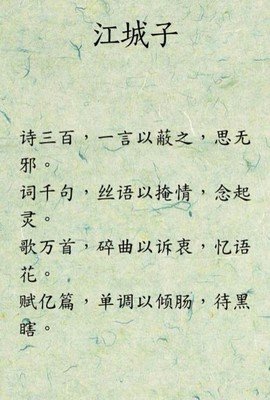 江城子
诗三百，一言以蔽之，思无
邪。
词千句，丝语以掩情，念起
灵。
歌万首，碎曲以诉衷，忆语
花。
赋亿篇，单调以倾肠，待黑
瞎。